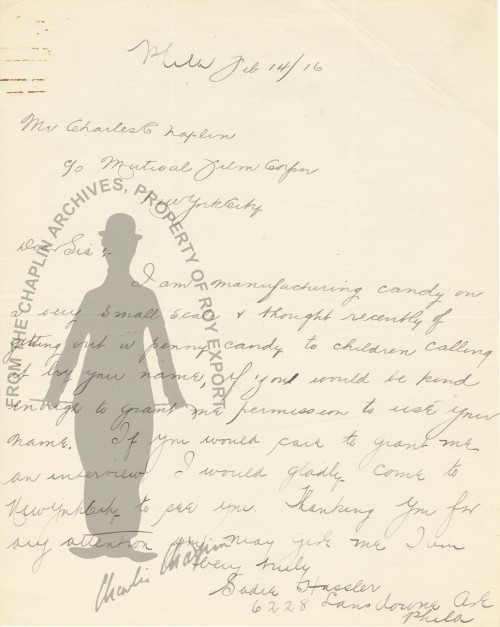 Phila Feb 14/16
Mr Charles Chaplin
c/o Mutual Film Corpn
New York City
Dear Sir :-
I am manufacturing candy on
a very small scale & thought recently of
getting out a penny candy to children calling
it by your name, if you would be kind
enough to grant me permission to use your
name. If you would care to grant me
an interview I would gladly come to
New York City to see you. Thanking you for
any attention you may give me I am
Very truly
Sadie Hassler
6228 Lansdowne Ave
Phila
FROM THE CHAPLIN ARCHIVES, PROPERTY OF ROY EXPORT
Charlie Chaplin